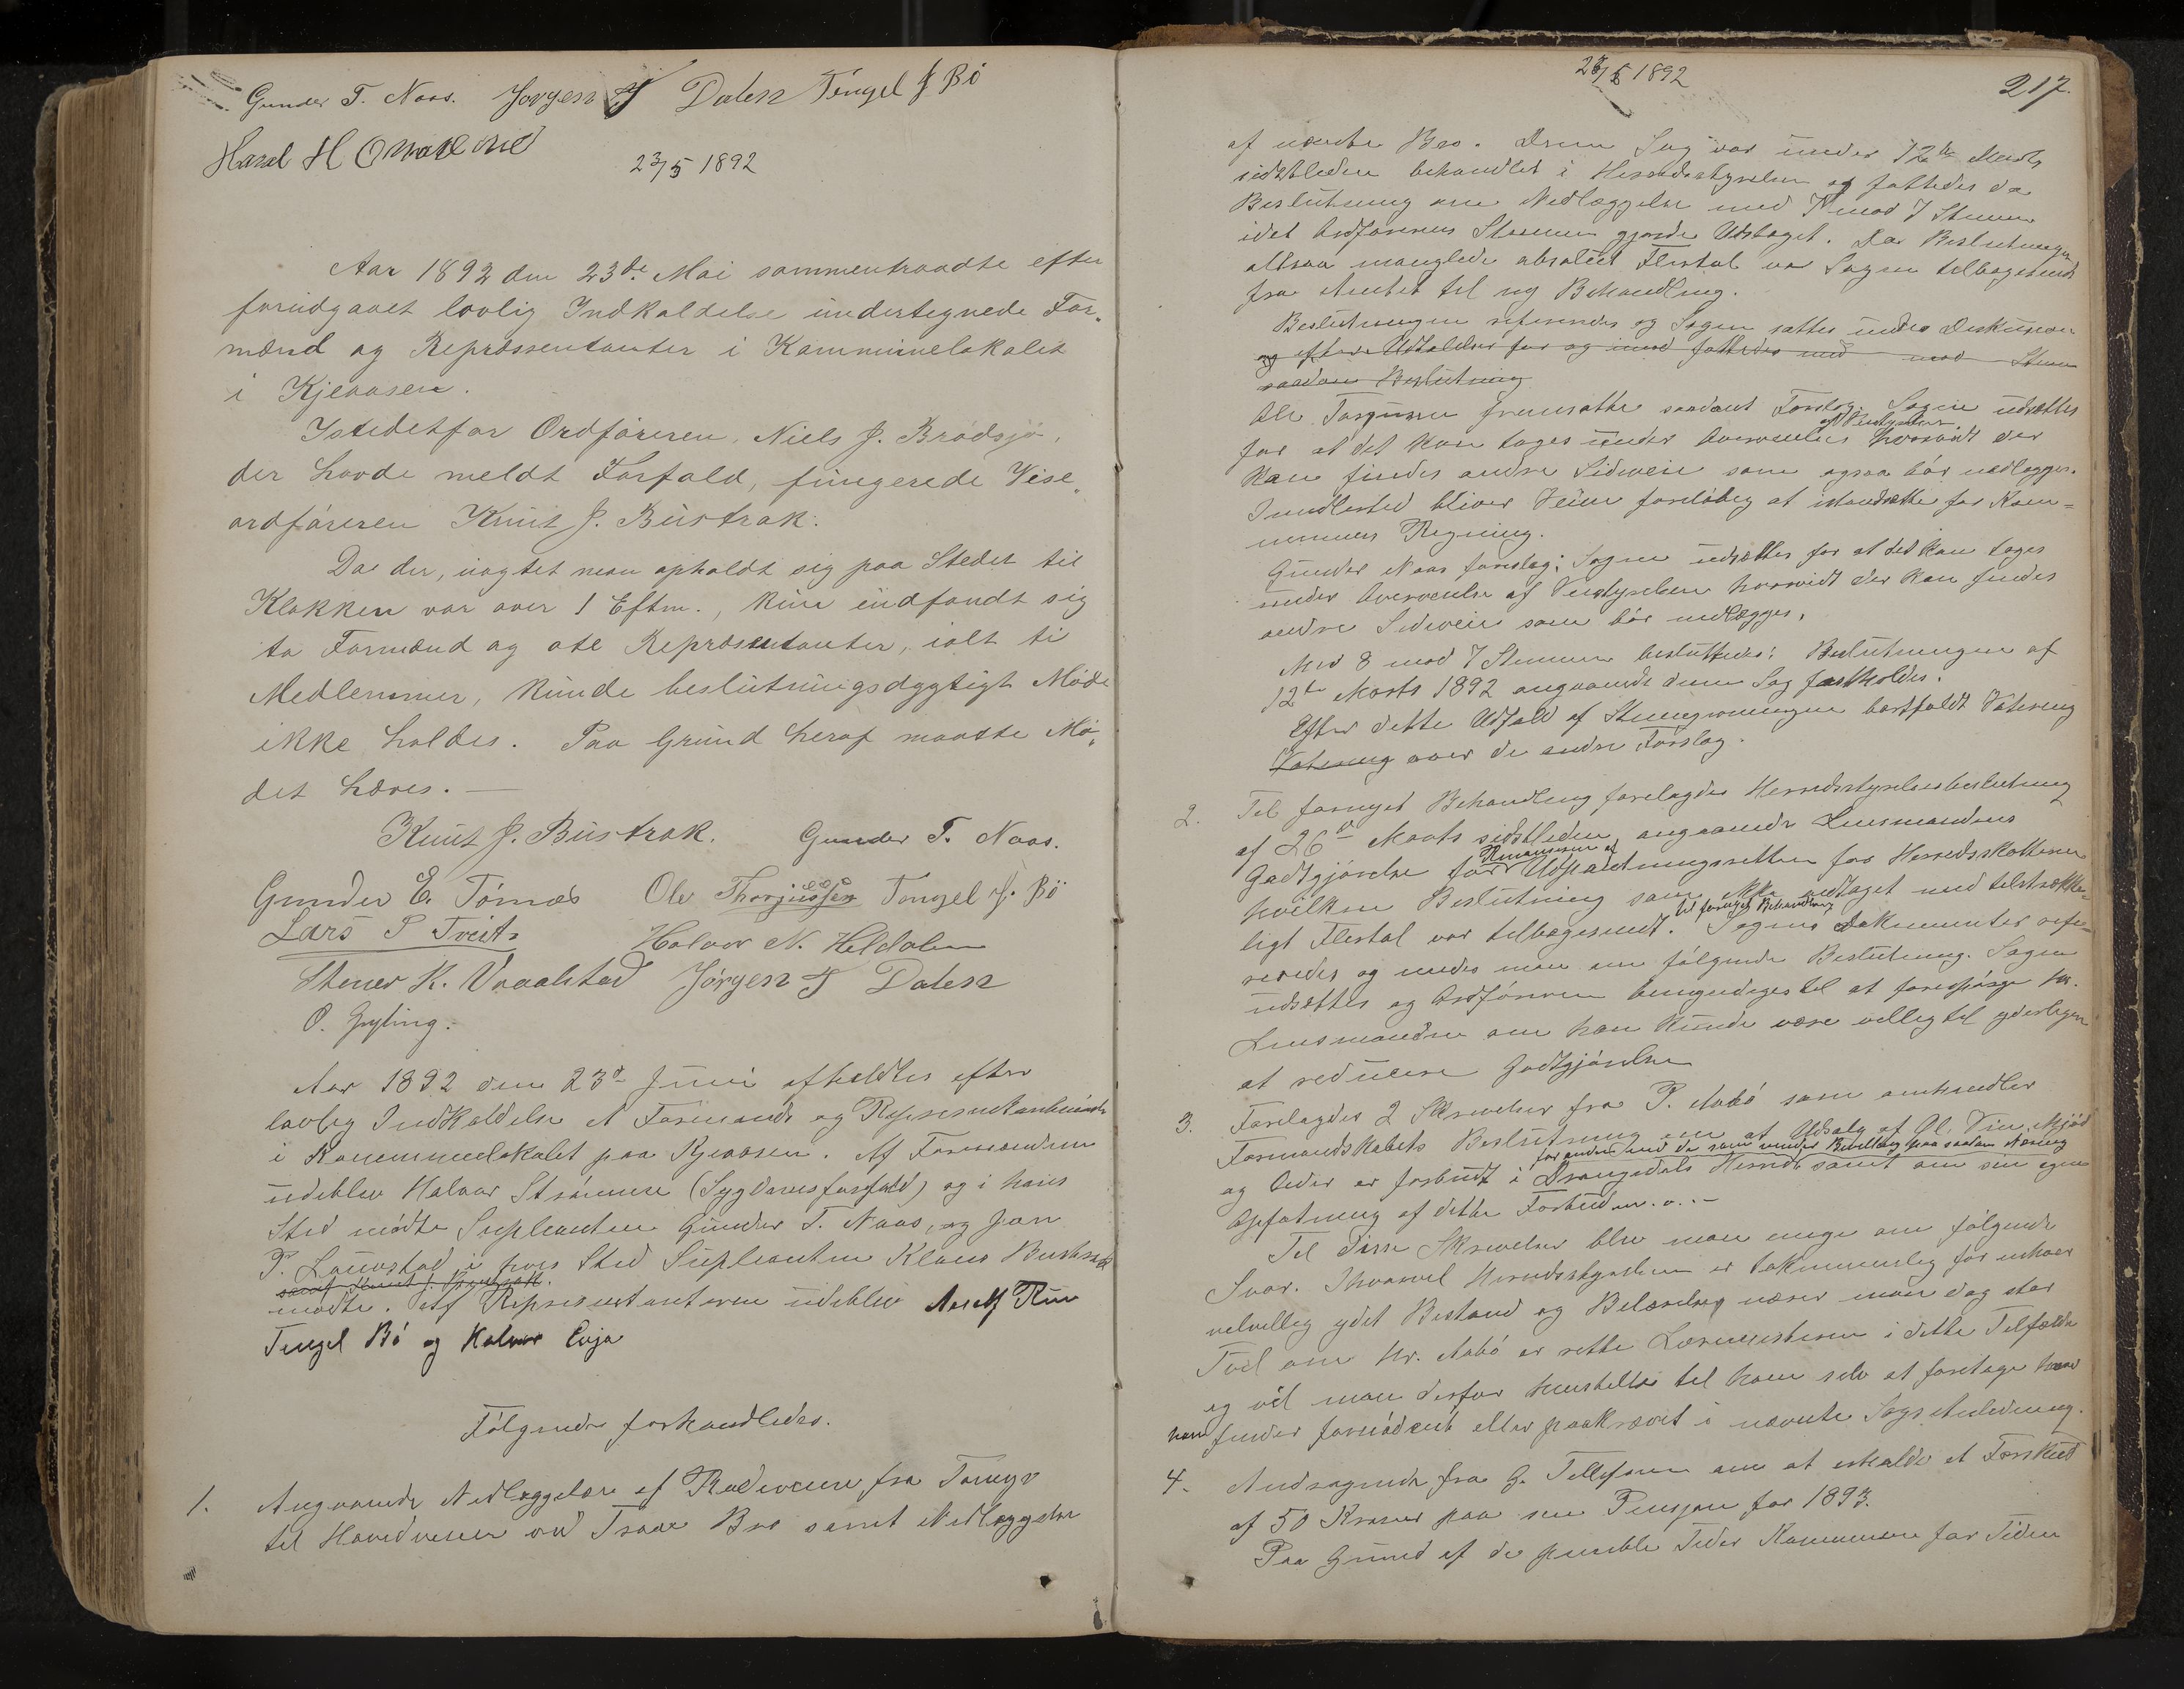 Gunder T. Naas. Jørgen T Dalen Tengel J Bö
Haral H Omdal
23/5 1892
Aar 1892 den 23de Mai sammentraadte efter
forudgaaet lovlig Indkaldelse undertegnede For„
mænd og Repræssentanter i Kommunelokalet
i Kjeaasen.
Istedetfor Ordføreren, Niels J. Brødsjø,
der havde meldt Forfald, fungerede Vise„
ordføreren Knut J. Bustrak.
Da der, uagtet man opholdt sig paa Stedet til
Klokken var over 1 Eftm., kun indfandt sig
to Formænd og otte Repræsentanter, ialt ti
Medlemmer, kunde beslutningsdygtigt Møde
ikke holdes. Paa Grund heraf maatte Mø„
det hæves. —
Knut J. Bustrak. Gunder T. Naas.
Gunder E. Törnæs Ole Thorjussen Tengel J. Bö
Lars P Tveit
Halvor N. Heldalen
Stener K. Vraalstad Jørgen T Dalen
O. Gryting.
Aar 1892 den 23de Juni afholdtes efter
lovlig Indkaldelse et Formands og Representantmøde
i Kommunelokalet paa Kjeaasen. Af Formændene
udeblev Halvor Strømme (Sygdomsforfald) og i hans
Sted mødte Supleanten Gunder T. Naas, og Jon
P. Laurstad i hvis Sted Supleanten Klaus Bustrak
samt Knut J. Bustrak.
mødte. Af Representanterne udeblev Adolf
Tengel Bö og Halvor Evja
Følgende forhandledes.
1. Angaaende Nedlæggelse af Rodeveien fra
til Hovedveien ved Bro samt Nedlæggelse
23/5 1892
217.
af nævnte Bro. Denne Sag var under 12te Marts
sidstleden behandlet i Herredsstyrelsen og fattedes da
Beslutning om Nedlæggelse med 7 mod 7 Stemmer
idet Ordførerens Stemme gjorde Udslaget. Da Beslutningen
altsaa manglede absolut Flertal var Sagen tilbagesendt
fra Amtet til ny Behandling.
Beslutningen refereredes og Sagen sattes under Diskusion
og efter Udtalelser for og imod fattedes med mod Stemmer
saadan Beslutning
Ole Torjusen fremsatte saadant Forslag. Sagen udsættes
af Veistyrelsen
for at det kan tages under Overveielse hvorvidt der
kan findes andre Sideveie som ogsaa bør nedlægges.
Imidlertid bliver Veien foreløbig at istandsætte for Kom=
munens Regning.
Gunder Naas foreslog: Sagen udsættes for at det kan tages
under Overveielse af Veistyrelsen hvorvidt der kan findes
andre Sideveie som bør nedlægges.
Med 8 mod 7 Stemmer besluttedes: Beslutningen af
12te Marts 1892 angaaende denne Sag fastholdes.
Efter dette Udfald af Stemgivningen bortfaldt Votering
Votering over de andre Forslag.
2. Til fornyet Behandling forelagdes Herredsstyrelsesbeslutning
af 26de Marts sidstleden angaaende Lensmandens
Godtgjørelse for Udpantningsretten for Herredsskatterne
hvilken Beslutning som ikke vedtaget med tilstrække-
til fornyet Behandling
ligt Flertal var tilbagesendt. Sagens Dokumenter refe-
reredes og enedes man om følgende Beslutning. Sagen
udsættes og Ordføreren bemyndiges til at forespørge hr.
Lensmanden om han kunde være villig til yderligere
at reducere Godtgjørelsen
3. Forelagdes 2 Skrivelser fra P. Aabö som omhandler
Formandskabets Beslutning om at Udsalg af Øl, Vin, Mjød
for andre end de som under Bevilling paa saadan Næring
og Cider er forbudt i Drangedals Herred samt om sin egen
Opfatning af dette Forbud m.v. —
Til Disse Skrivelser blev man enige om følgende
Svar. Ihvorvel Herredsstyrelsen er taknemmelig for enhver
velvillig ydet Bistand og Belærelse nærer man dog stor
Tvil om Hr. Aabö er rette Læremesteren i dette Tilfælde
og vil man derfor henstille til ham selv at foretage hvad
han finder fornødent eller paakrævet i nævnte Sags Anledning.
4. Andragende fra G. Tellefsen om at erholde et Forskud
af 50 Kroner paa sin Pensjon for 1893.
Paa Grund af de penible Tider Kommunen for Tiden